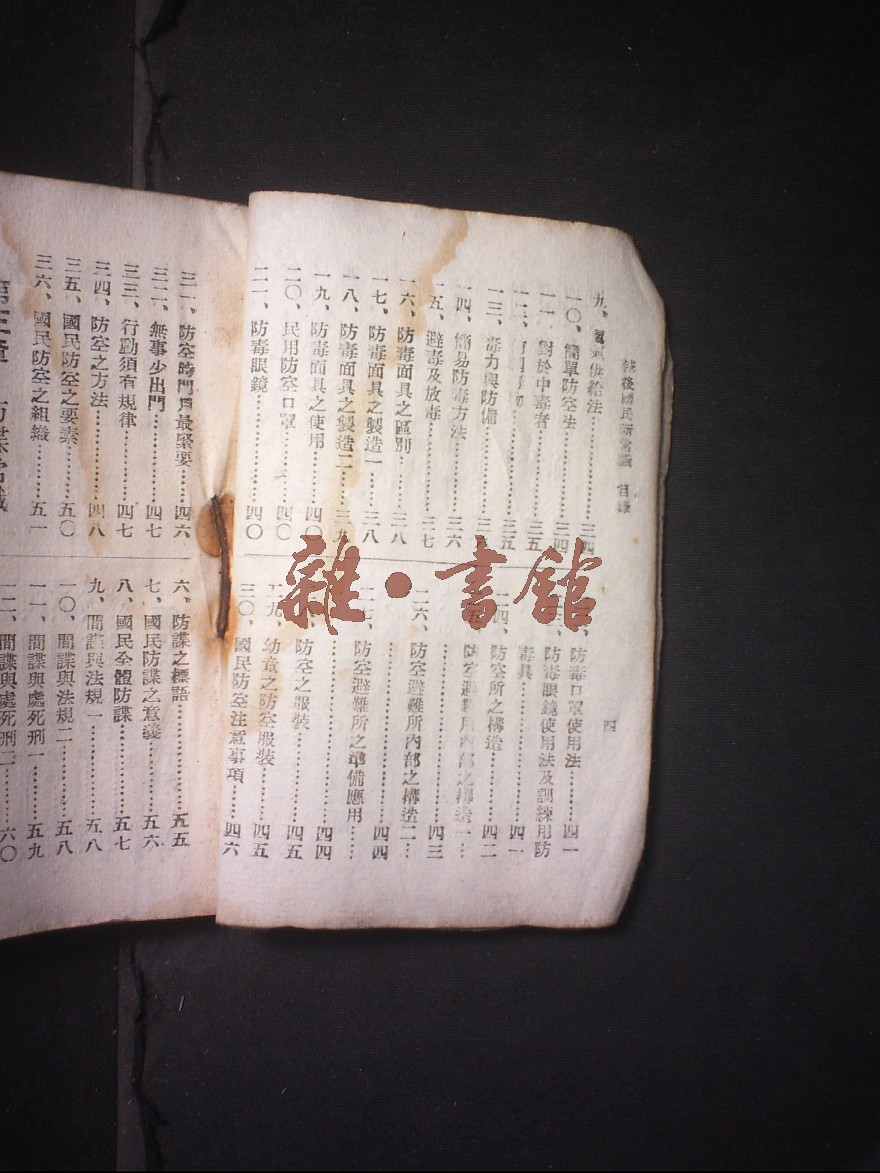 銃後國民新常識 目錄
四
九、氧氣供給法……三四
一〇、簡單防空法……三四
一一、對於中毒者……三五
一二、……三五
一三、毒力與防備……三六
一四、簡易防毒方法……三六
一五、避毒及放毒……三七
一六、防毒面具之區別……三八
一七、防毒面具之製造一……三八
一八、防毒面具之製造二……三九
一九、防毒面具之使用……四〇
二〇、民用防空口罩……四〇
二一、防毒眼鏡……四〇
防毒口罩使用法……四一
防毒眼鏡使用法及訓練用防
毒具……四一
二四、防空所之構造……四二
防空避難所內部之構造一……
……四三
二六、防空避難所內部之構造二…
……四四
二七、防空避難所之準備應用……
……四四
防空之服裝……四五
二九、幼童之防空服裝……四五
三〇、國民防空注意事項……四六
雜·書館
三一、防空時門戶最緊要……四六
三二、無事少出門……四七
三三、行動須有規律……四七
三四、防空之方法……四八
三五、國民防空之要素……五〇
三六、國民防空之組織……五一
第三章 防諜常識
六、防諜之標語……五五
七、國民防諜之意義……五六
八、國民全體防諜……五七
九、間諜與法規一……五八
一〇、間諜與法規二……五八
一一、間諜與處死刑一……五九
一二、間諜與處死刑二……六〇